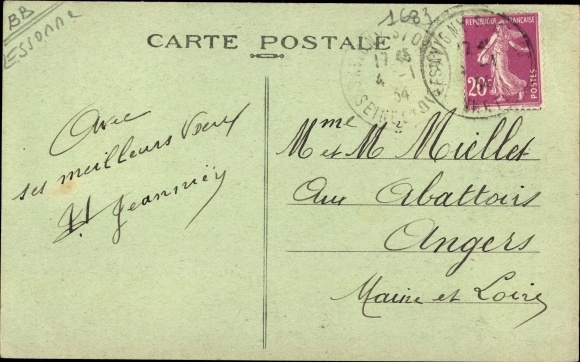 BB
ESSONNE
1683
CARTE POSTALE
REPUBLIQUE FRANÇAISE
20c
POSTES
17
4 -1
34
SEINE ET OISE
Avec
ses meilleurs vœux
H Jeannier
Mme
M et M Miellet
Aux Abattoirs
Angers
Maine et Loire